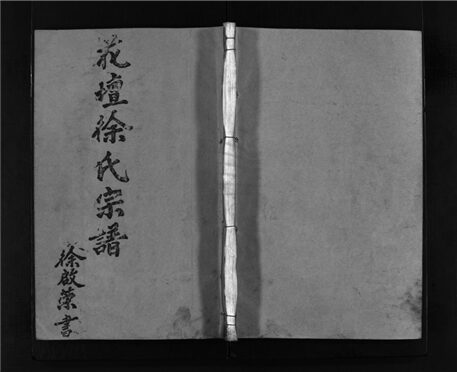 花壇徐氏宗譜
徐啟藻書